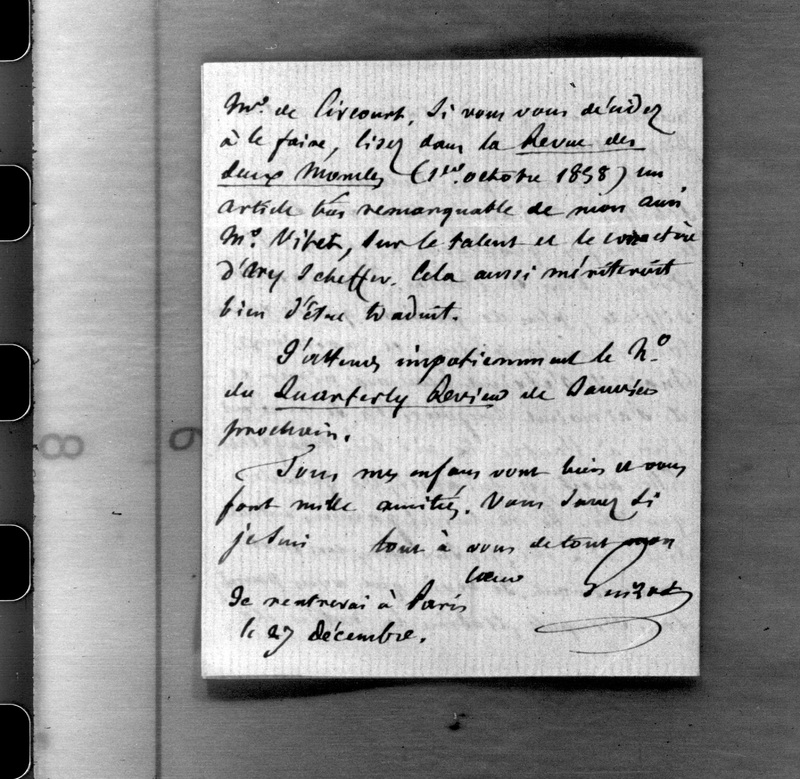 Mr. de Circourt. Si vous vous décidez
à le faire, lisez dans la Revue des
deux Mondes (1er. octobre 1858) un
article très remarquable de mon ami
Mr. Vitet, sur le talent et le caractère
d'Ary Scheffer. Cela aussi mériteroit
bien d'être traduit.
J'attends impatiemment le No.
du Quarterly Review de Janvier
prochain.
Tous mes enfans vont bien et vous
font mille amitiés. Vous savez si
je suis tout à vous de tout mon
coeur Guizot
Je rentrerai à Paris
le 27 décembre.
8
6